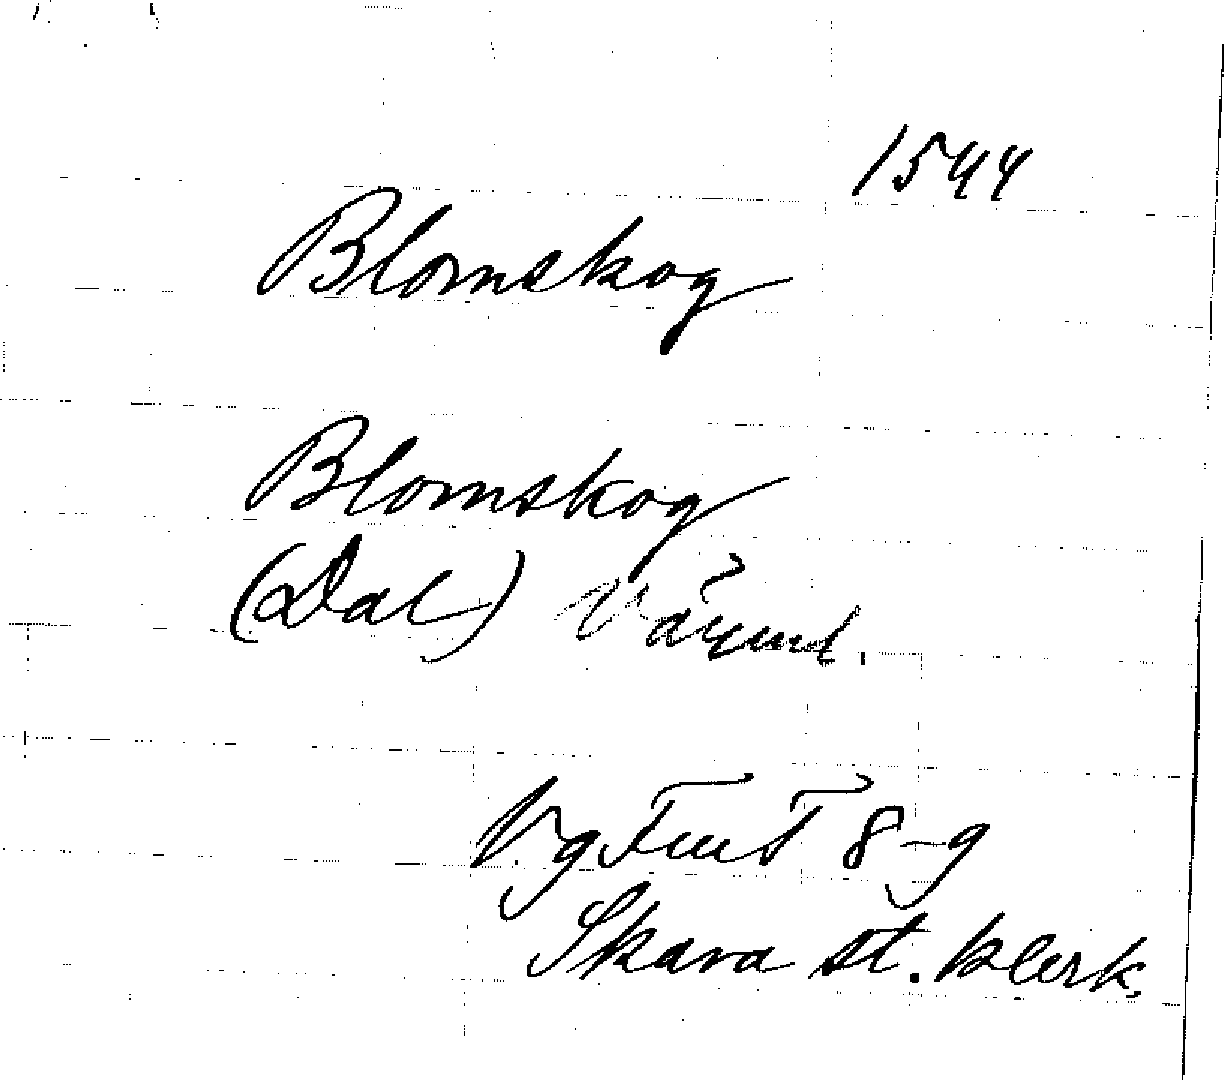 1544
Blomskog
Blomskog
(Dal)
VgFmT 8-9
Skara st. klerk.